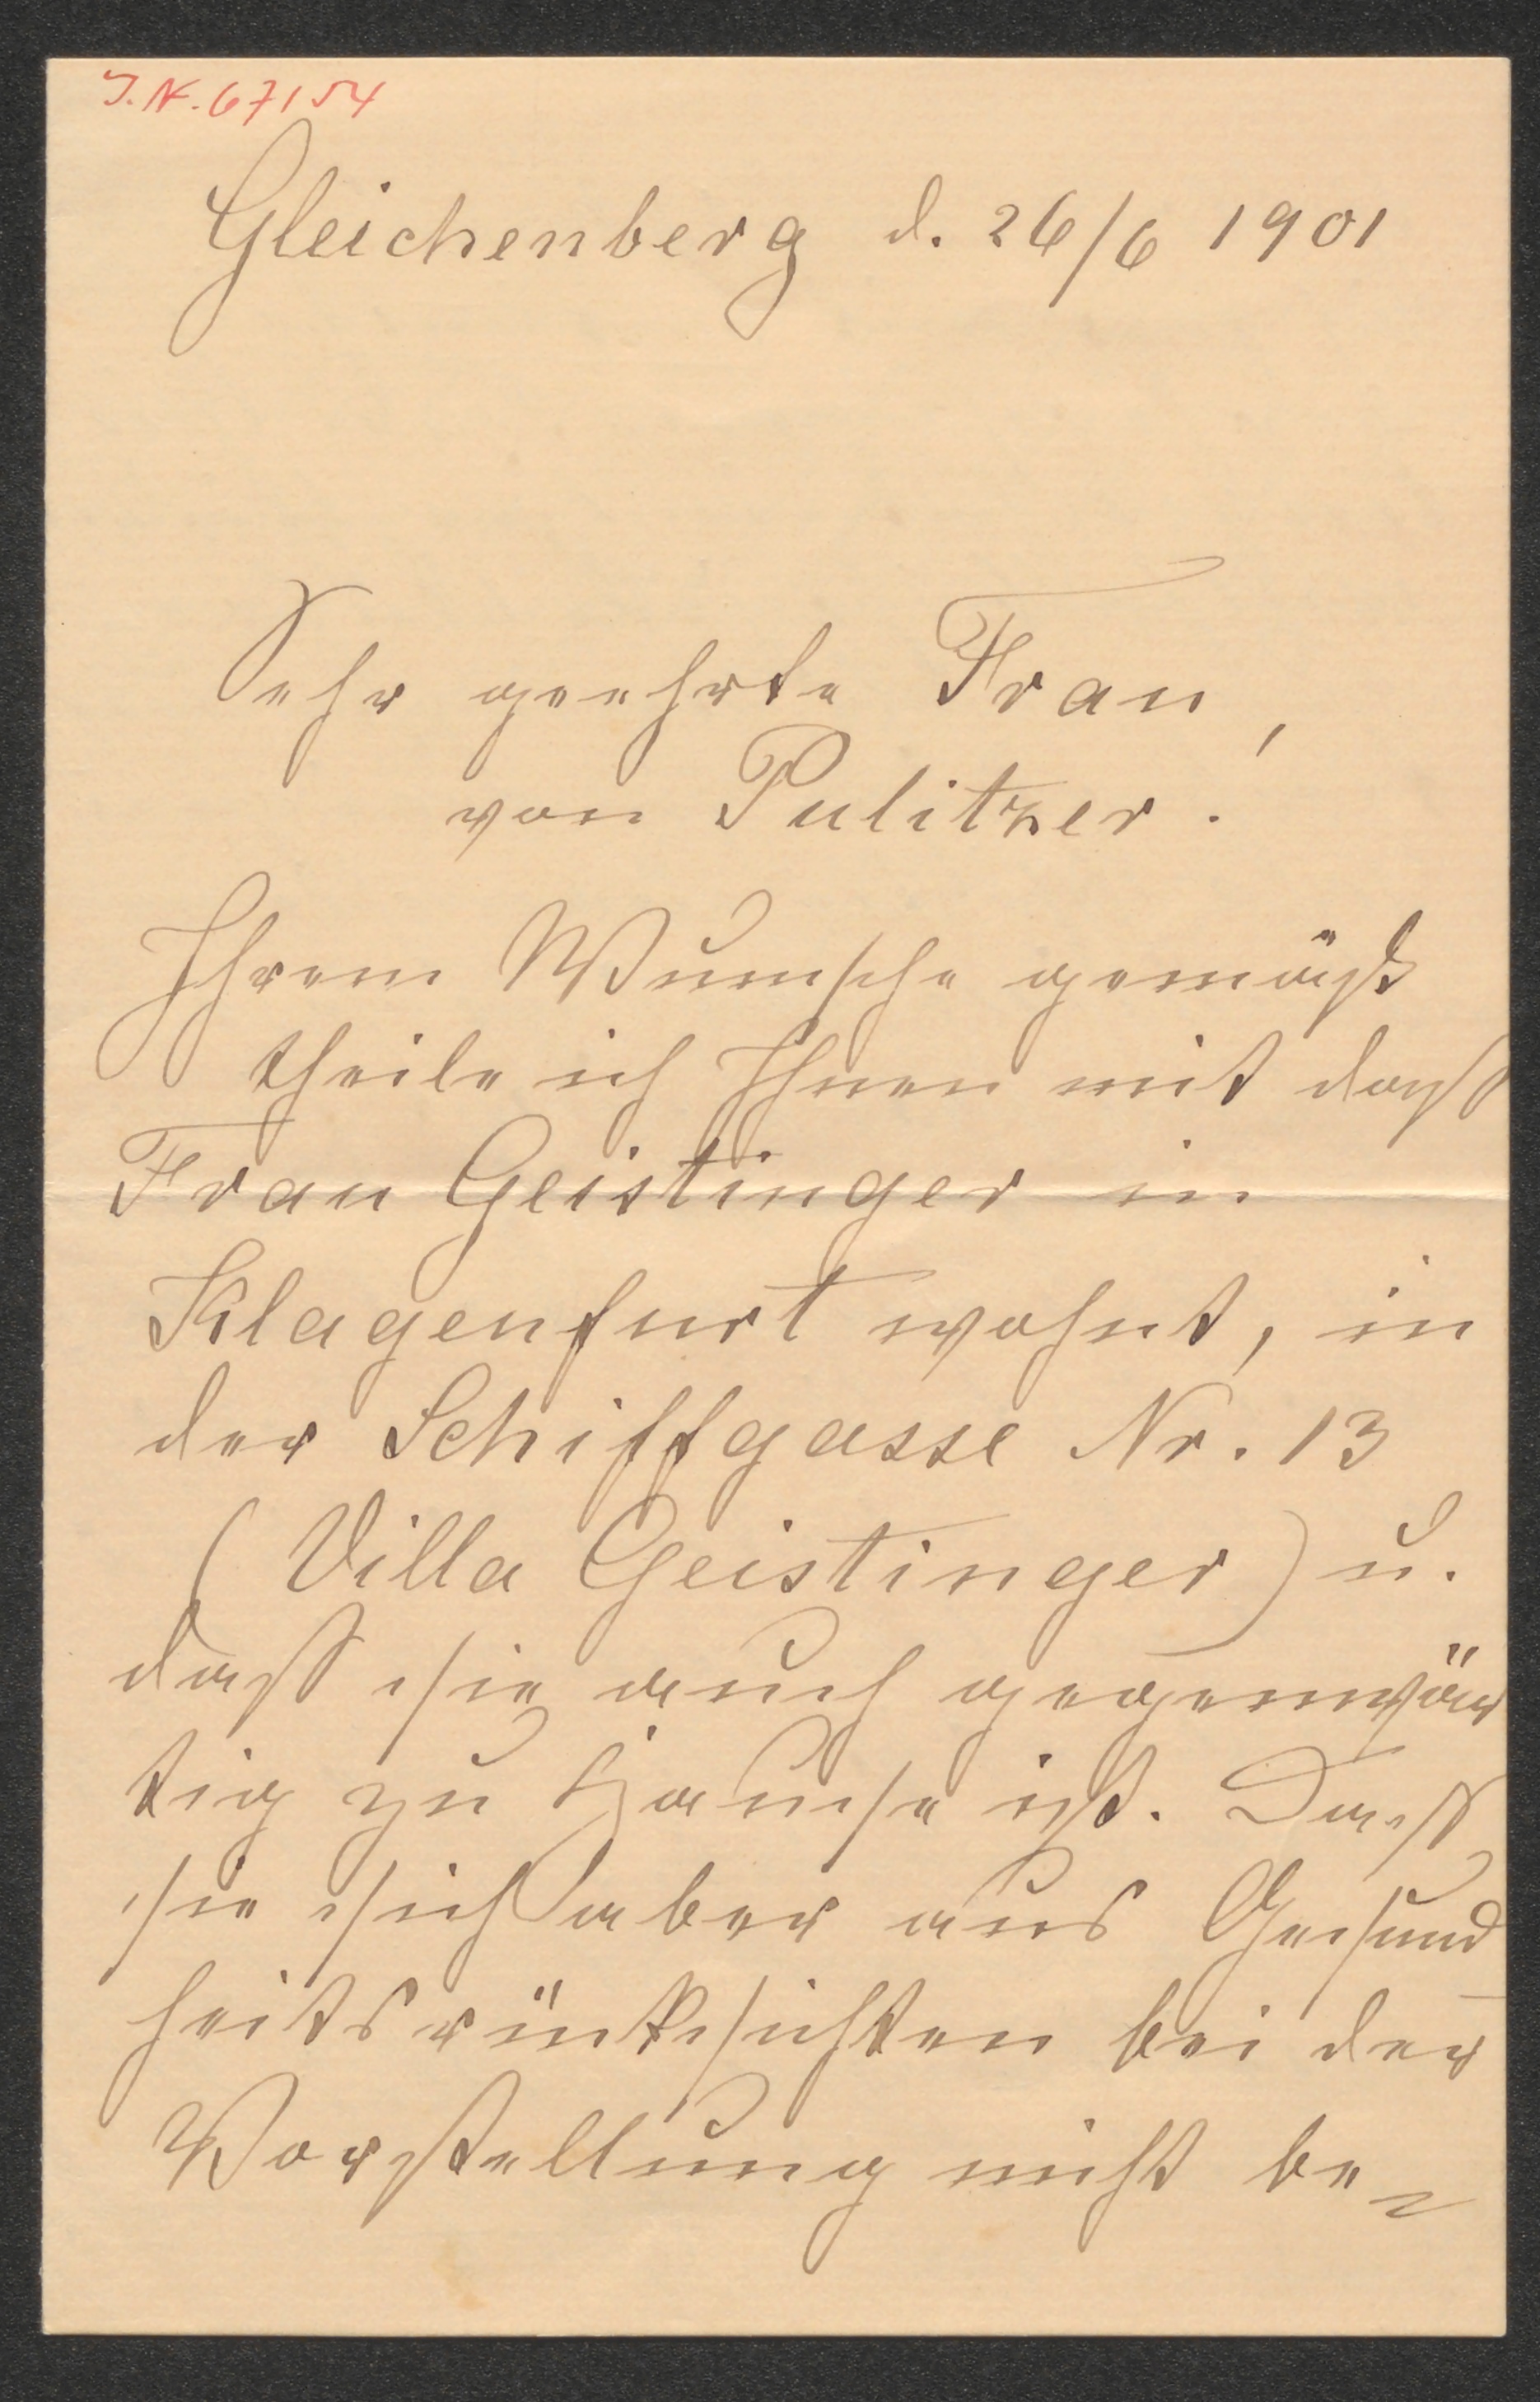 J.N. 67154
Gleichenberg d. 26/6 1901
Sehr geehrte Frau
von Pulitzer!
Ihrem Wunsche gemäß
theile ich Ihnen mit daß
Frau Geistinger in
Klagenfurt wohnt, in
der Schiffgasse Nr. 13
(Villa Geistinger) u.
daß sie auch gegenwär
tig zu Hause ist. Daß
sie sich aber aus Gesund
heitsrücksichten bei der
Vorstellung nicht be-